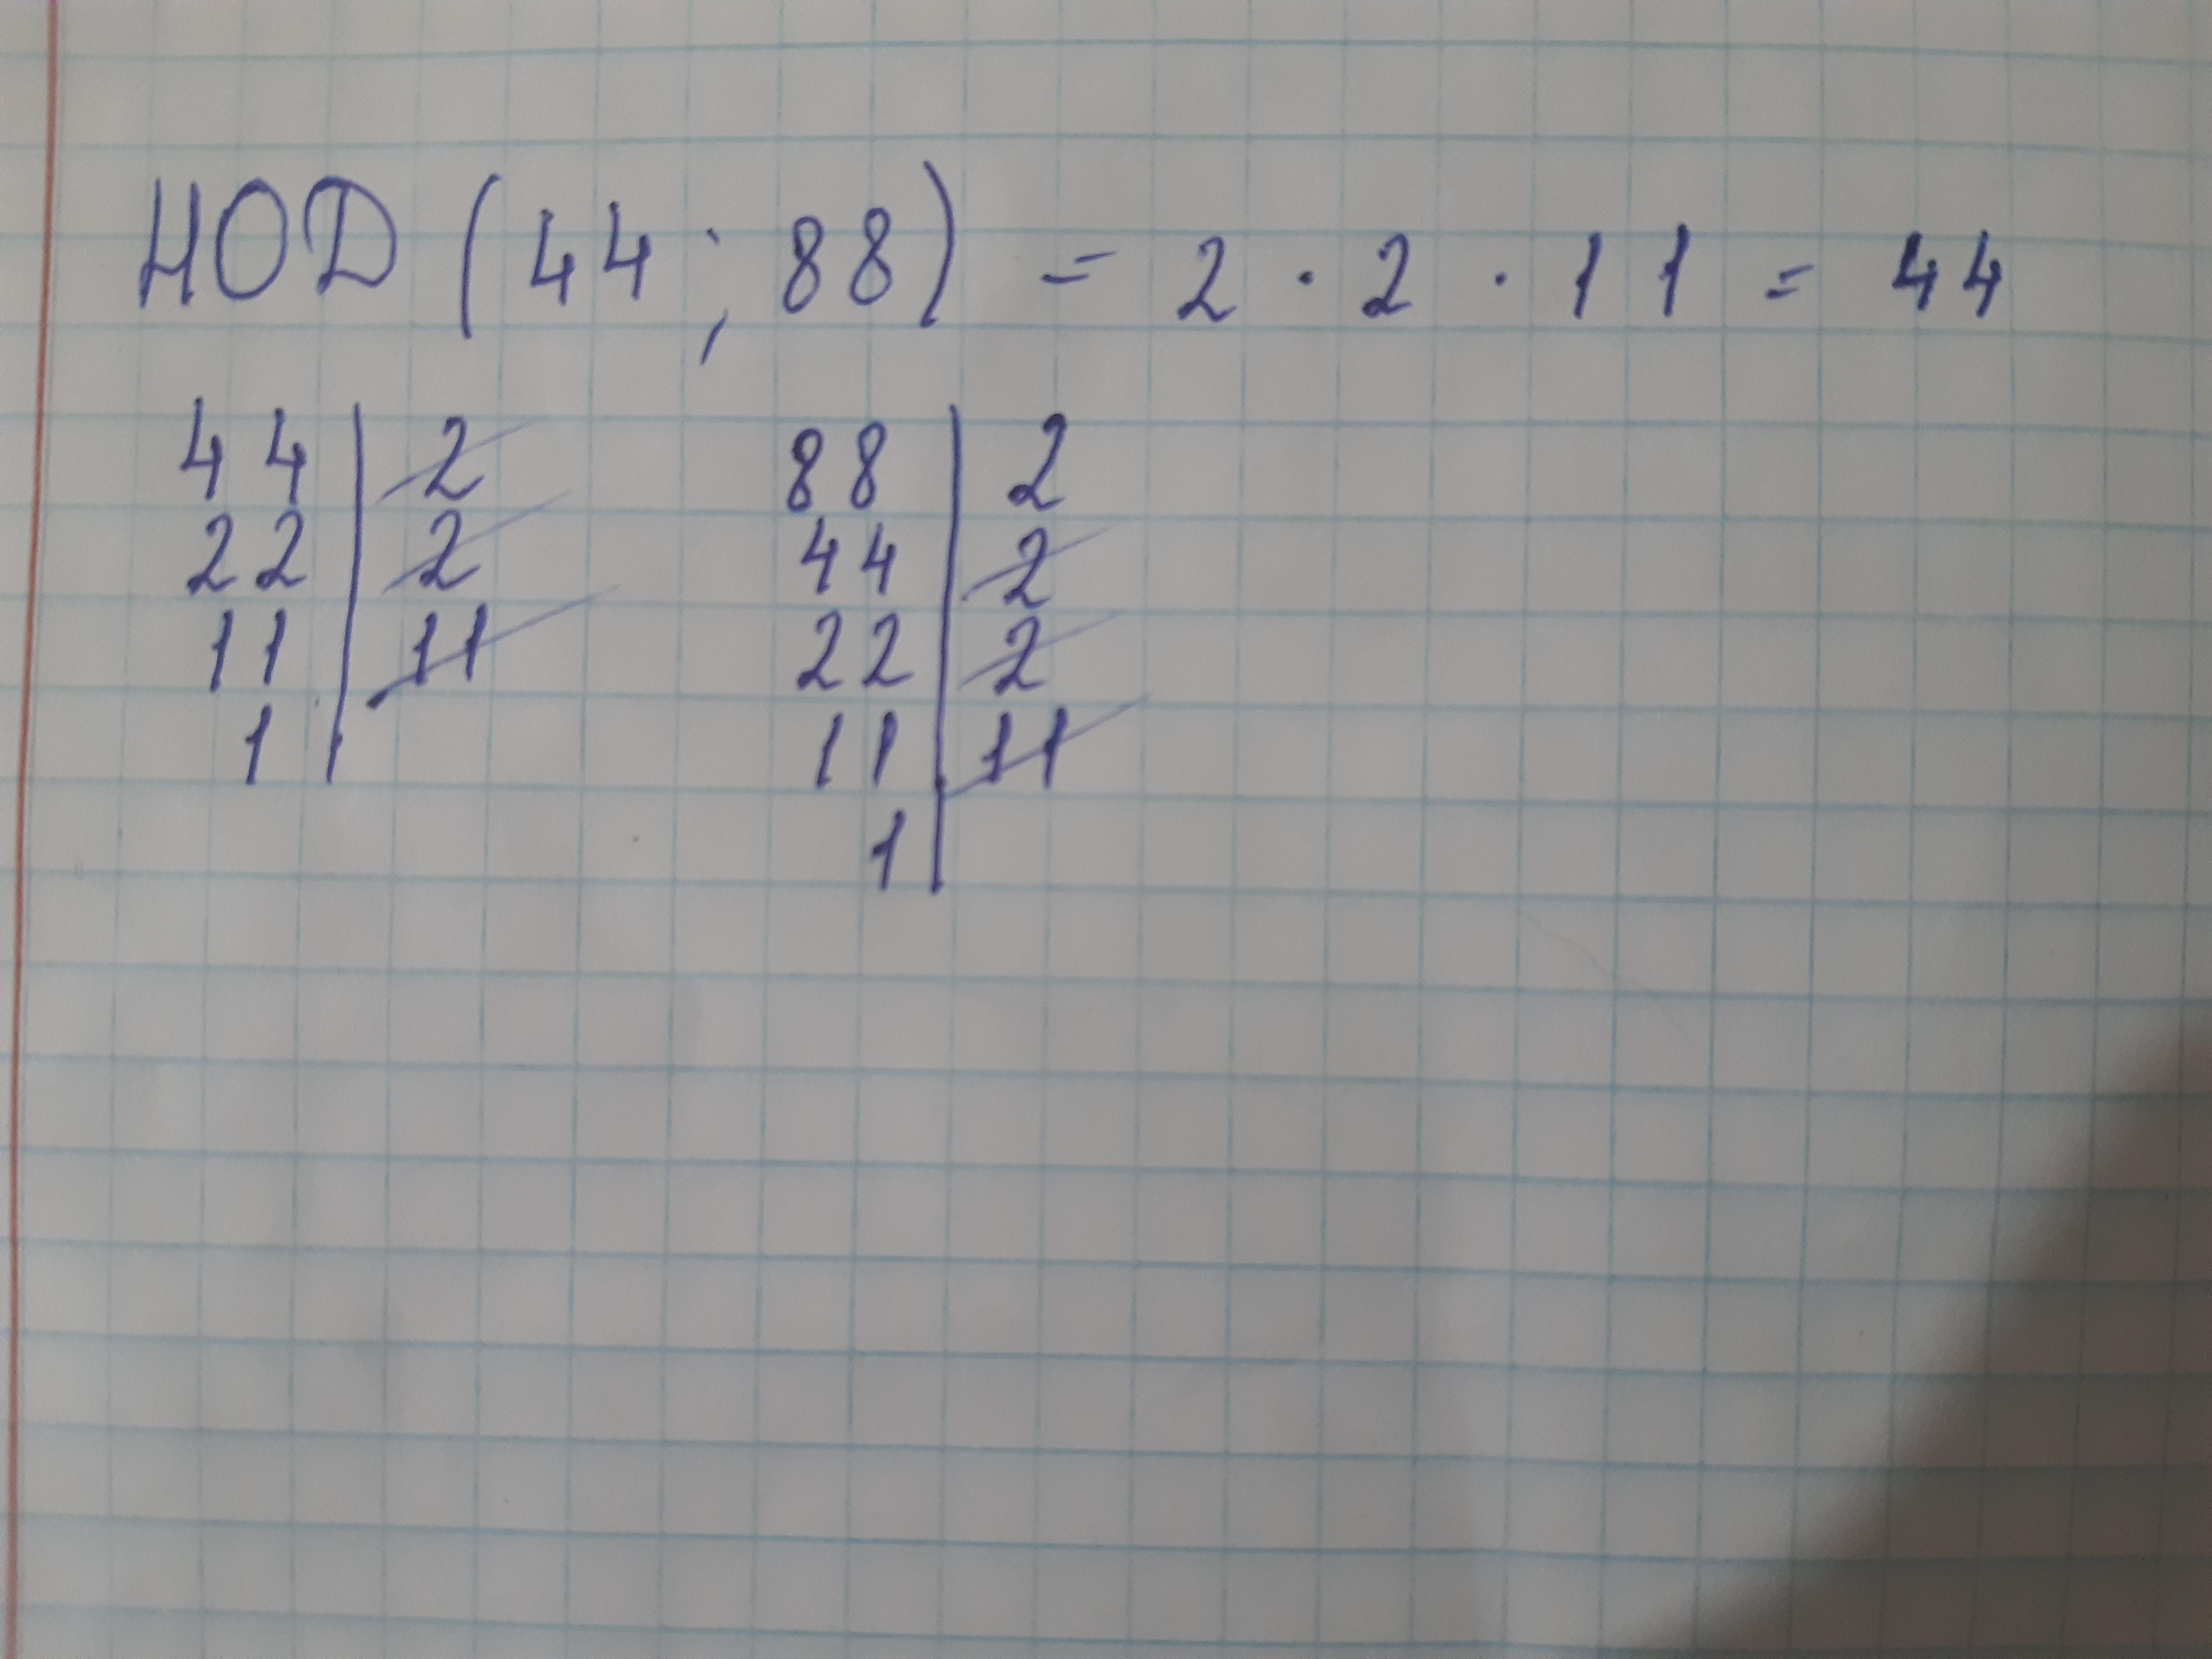 НОД (44; 88) = 2 · 2 · 11 = 44
44 | 2
22 | 2
11 | 11
1 |
88 | 2
44 | 2
22 | 2
11 | 11
1 |